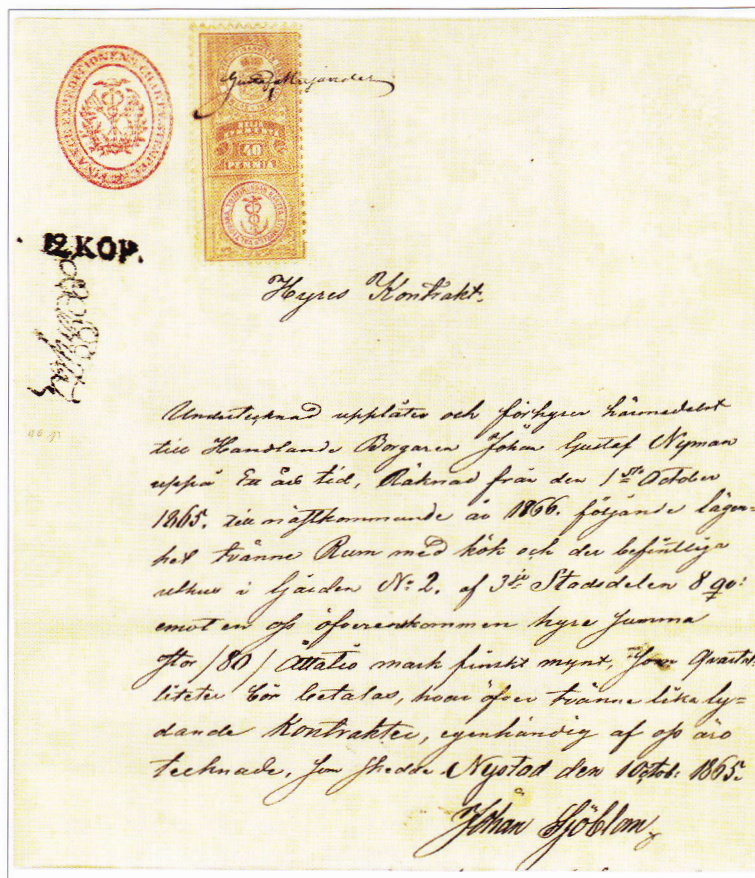 Gustaf
40
PENNIA
12 KOP.
Hyres Kontrakt.
Undertecknad upplåter och förhyrer härmedelst
till Handlande Borgaren Johan Gustaf Nyman
uppå Ett års tid, Räknad från den 1sta October
1865. till nästkommande år 1866. följande lägen=
het tvänne Rum med kök och der befintliga
uthus i Gården No 2. af 3die Stadsdelen 8
emot en oss öfverenskommen hyre summa
stor /80/ Åttatio mark finskt mynt, som Qvarta
liter bör betalas, hvaröfver tvänne lika ly=
dande Kontrakter, egenhändig af oss äro
tecknade, som skedde Nystad den 1 Octob: 1865.
Johan Sjöblom